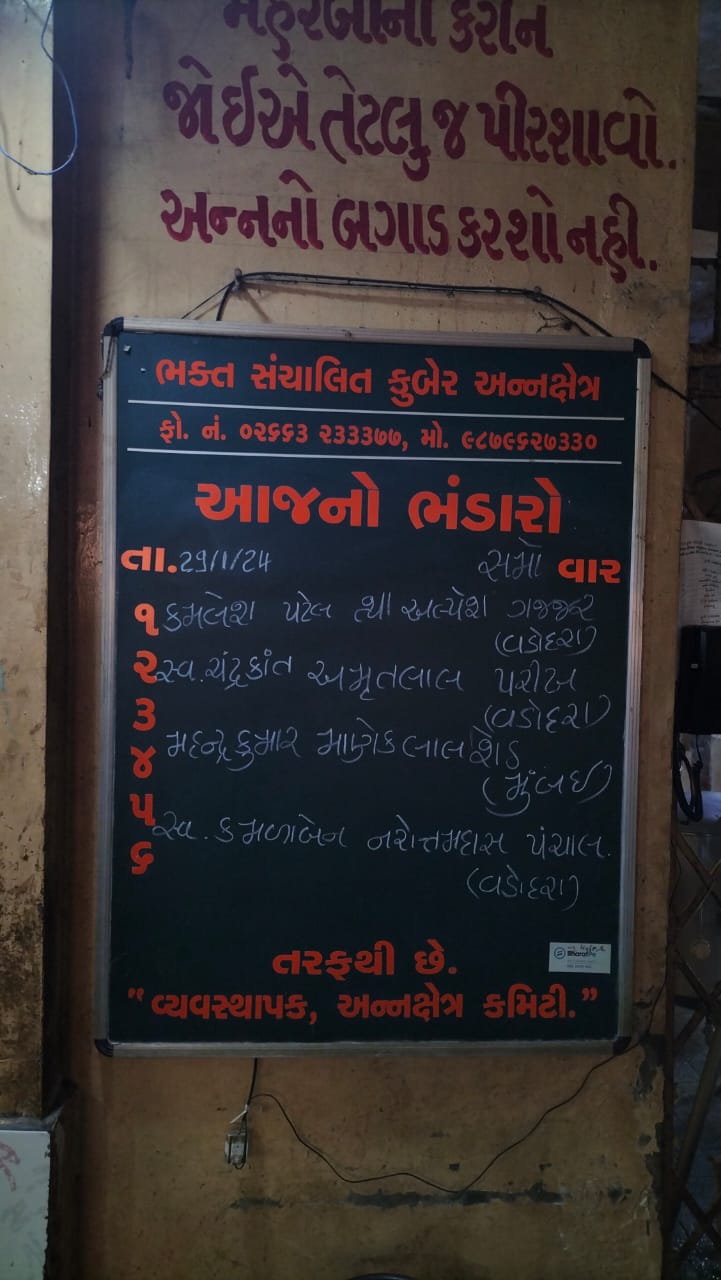 મહેરબાની કરીને
જોઈએ તેટલુ જ પીરશાવો.
અન્નનો બગાડ કરશો નહી.
ભક્ત સંચાલિત કુબેર અન્નક્ષેત્ર
ફો. નં. ૦૨૬૬૩ ૨૩૩૩૭૭, મો. ૯૮૭૯૬૨૭૩૩૦
આજનો ભંડારો
તા. 29/1/24 સમો વાર
૧ કમલેશ પટેલ તથા અલ્પેશ ગજ્જર
(વડોદરા)
૨ સ્વ. ચંદ્રકાંત અમૃતલાલ પરીખ
૩ (વડોદરા)
૪ મહેન્દ્રકુમાર માણેકલાલ શેઠ
(મુંબઈ)
૫ સ્વ. કમળાબેન નરોત્તમદાસ પંચાલ.
૬ (વડોદરા)
તરફથી છે.
BharatPe
“વ્યવસ્થાપક, અન્નક્ષેત્ર કમિટી.”